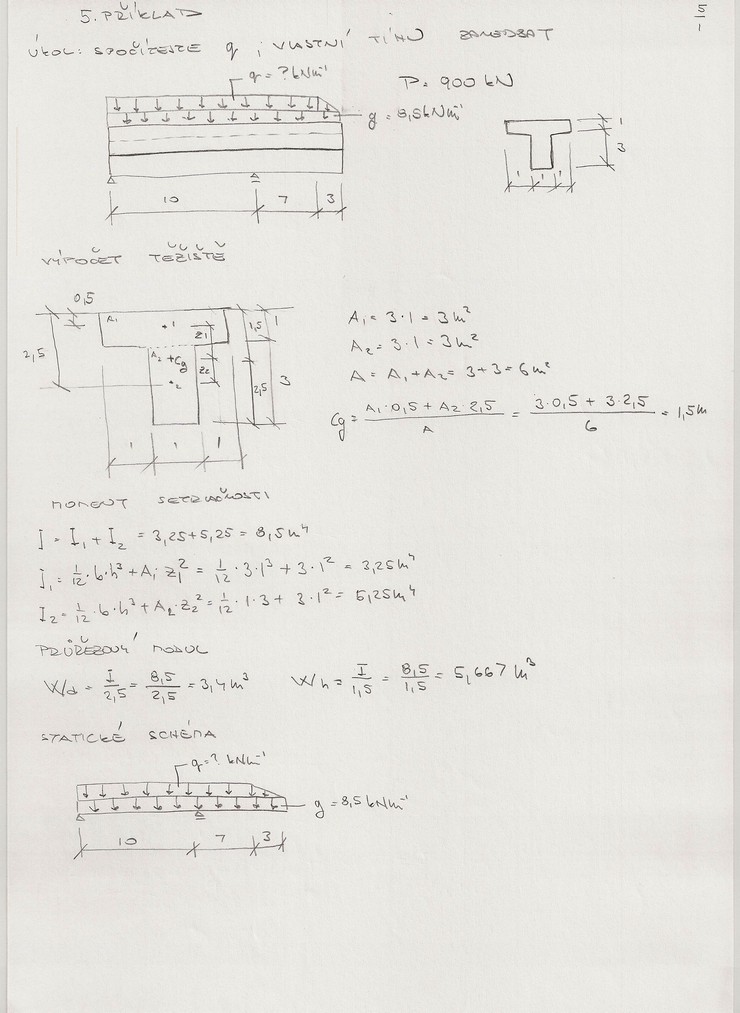 5. PŘÍKLAD
5/1
ÚKOL: SPOČÍTEJTE q, VLASTNÍ TÍHU ZANEDBAT
q = ? kNm⁻¹
P = 900 kN
g = 8,5 kNm⁻¹
1
3
10 7 3
1 1 1
VÝPOČET TĚŽIŠTĚ
0,5
A₁ 1 z₁ 1,5 1
2,5
A₂ Cg z₂ 2 2,5 3
1 1 1
A₁ = 3·1 = 3m²
A₂ = 3·1 = 3m²
A = A₁ + A₂ = 3+3 = 6m²
Cg = (A₁·0,5 + A₂·2,5)/A = (3·0,5 + 3·2,5)/6 = 1,5m
MOMENT SETRVAČNOSTI
I = I₁ + I₂ = 3,25+5,25 = 8,5m⁴
I₁ = 1/12·b·h³ + A₁·z₁² = 1/12·3·1³ + 3·1² = 3,25m⁴
I₂ = 1/12·b·h³ + A₂·z₂² = 1/12·1·3 + 3·1² = 5,25m⁴
PRŮŘEZOVÝ MODUL
Wd = I/2,5 = 8,5/2,5 = 3,4m³ Wh = I/1,5 = 8,5/1,5 = 5,667m³
STATICKÉ SCHÉMA
q = ? kNm⁻¹
g = 8,5 kNm⁻¹
10 7 3